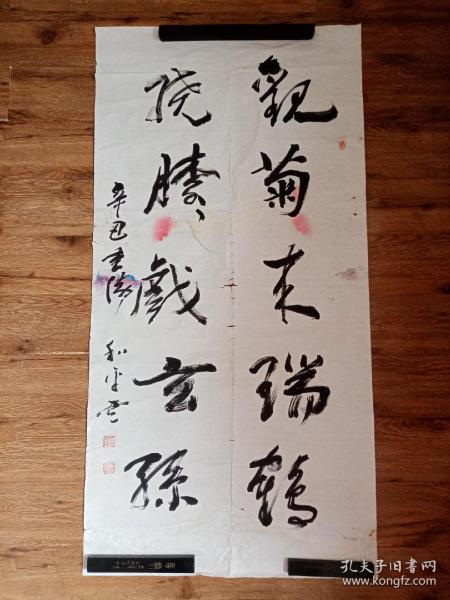 觀菊来瑞鶴
绕膝戲玄孫
辛丑重陽
和平書
孔夫子旧书网
www.kongfz.com